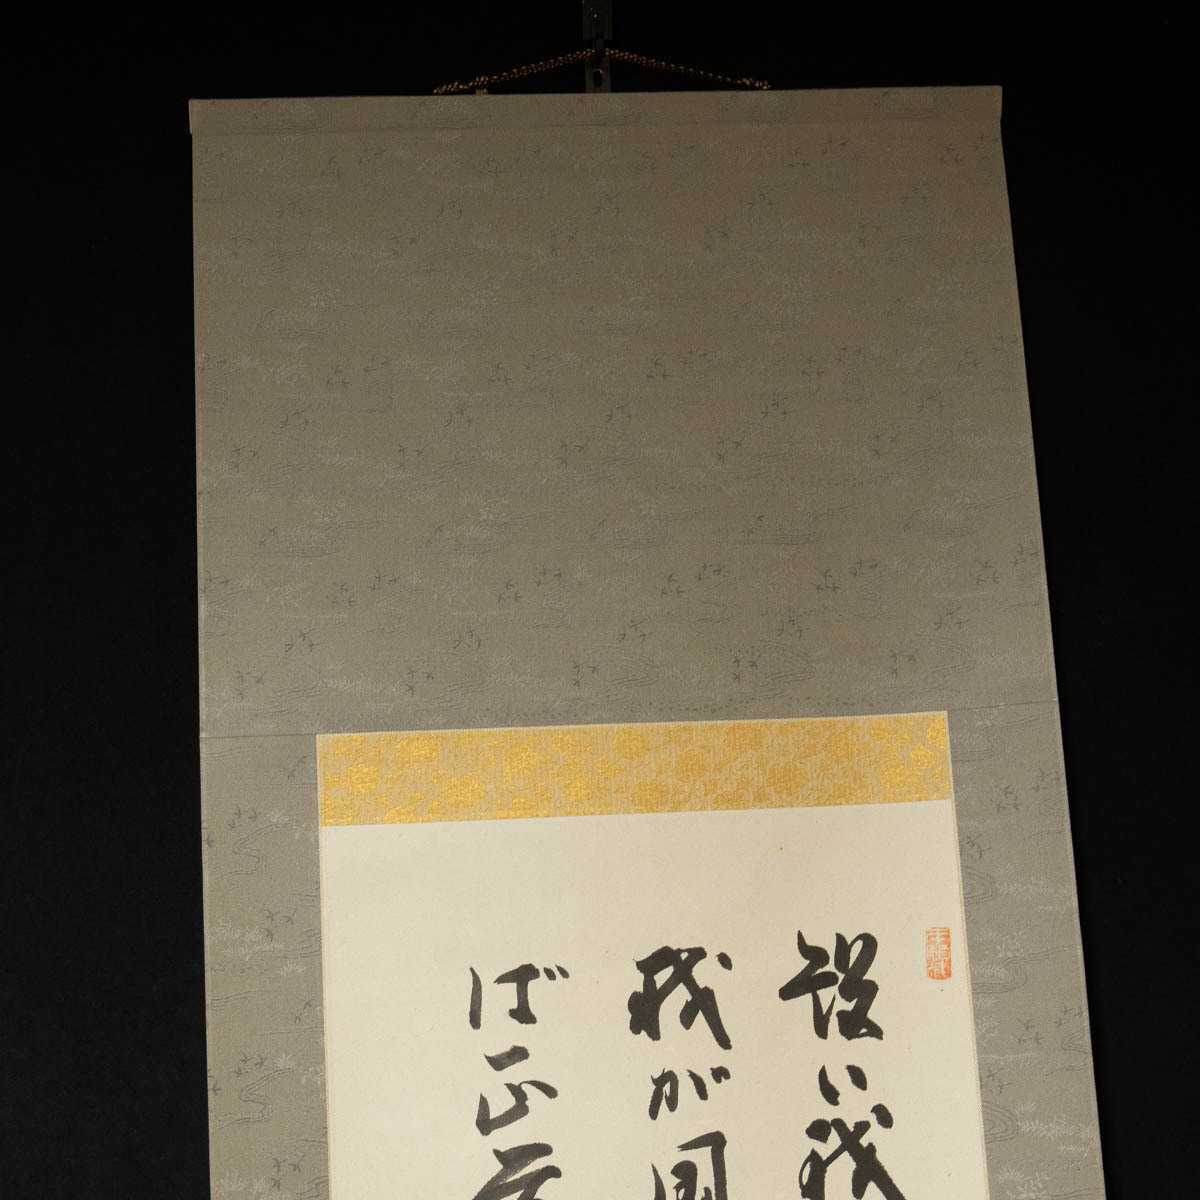 設い我
我が国
ば正